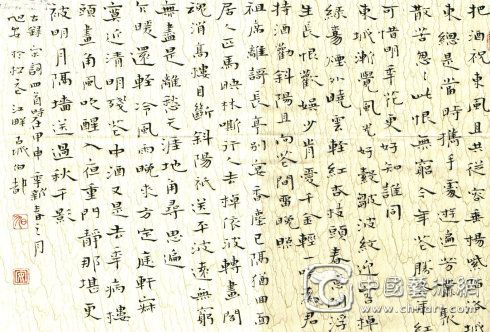 把酒祝東風且共從容垂楊紫陌洛城
東總是當時攜手處游遍芳叢聚
散苦匆匆此恨無窮今年花勝去年紅
可惜明年花更好知誰同
東城漸覺風光好縠皺波紋迎客棹
綠楊煙外曉雲輕紅杏枝頭春意鬧浮
生長恨歡娛少肯愛千金輕一笑為君
持酒勸斜陽且向花間留晚照
祖席離歌長亭別宴香塵已隔猶回面
居人匹馬映林嘶行人去棹依波轉畫閣
魂消高樓目斷斜陽祇送平波遠無窮
無盡是離愁天涯地角尋思遍
乍暖還輕冷風雨晚來方定庭軒寂
寞近清明殘花中酒又是去年病樓
頭畫角風吹醒入夜重門靜那堪更
被明月隔墻送過秋千影
錄宋詞四首時甲申年新春之月
江畔
中國藝術網